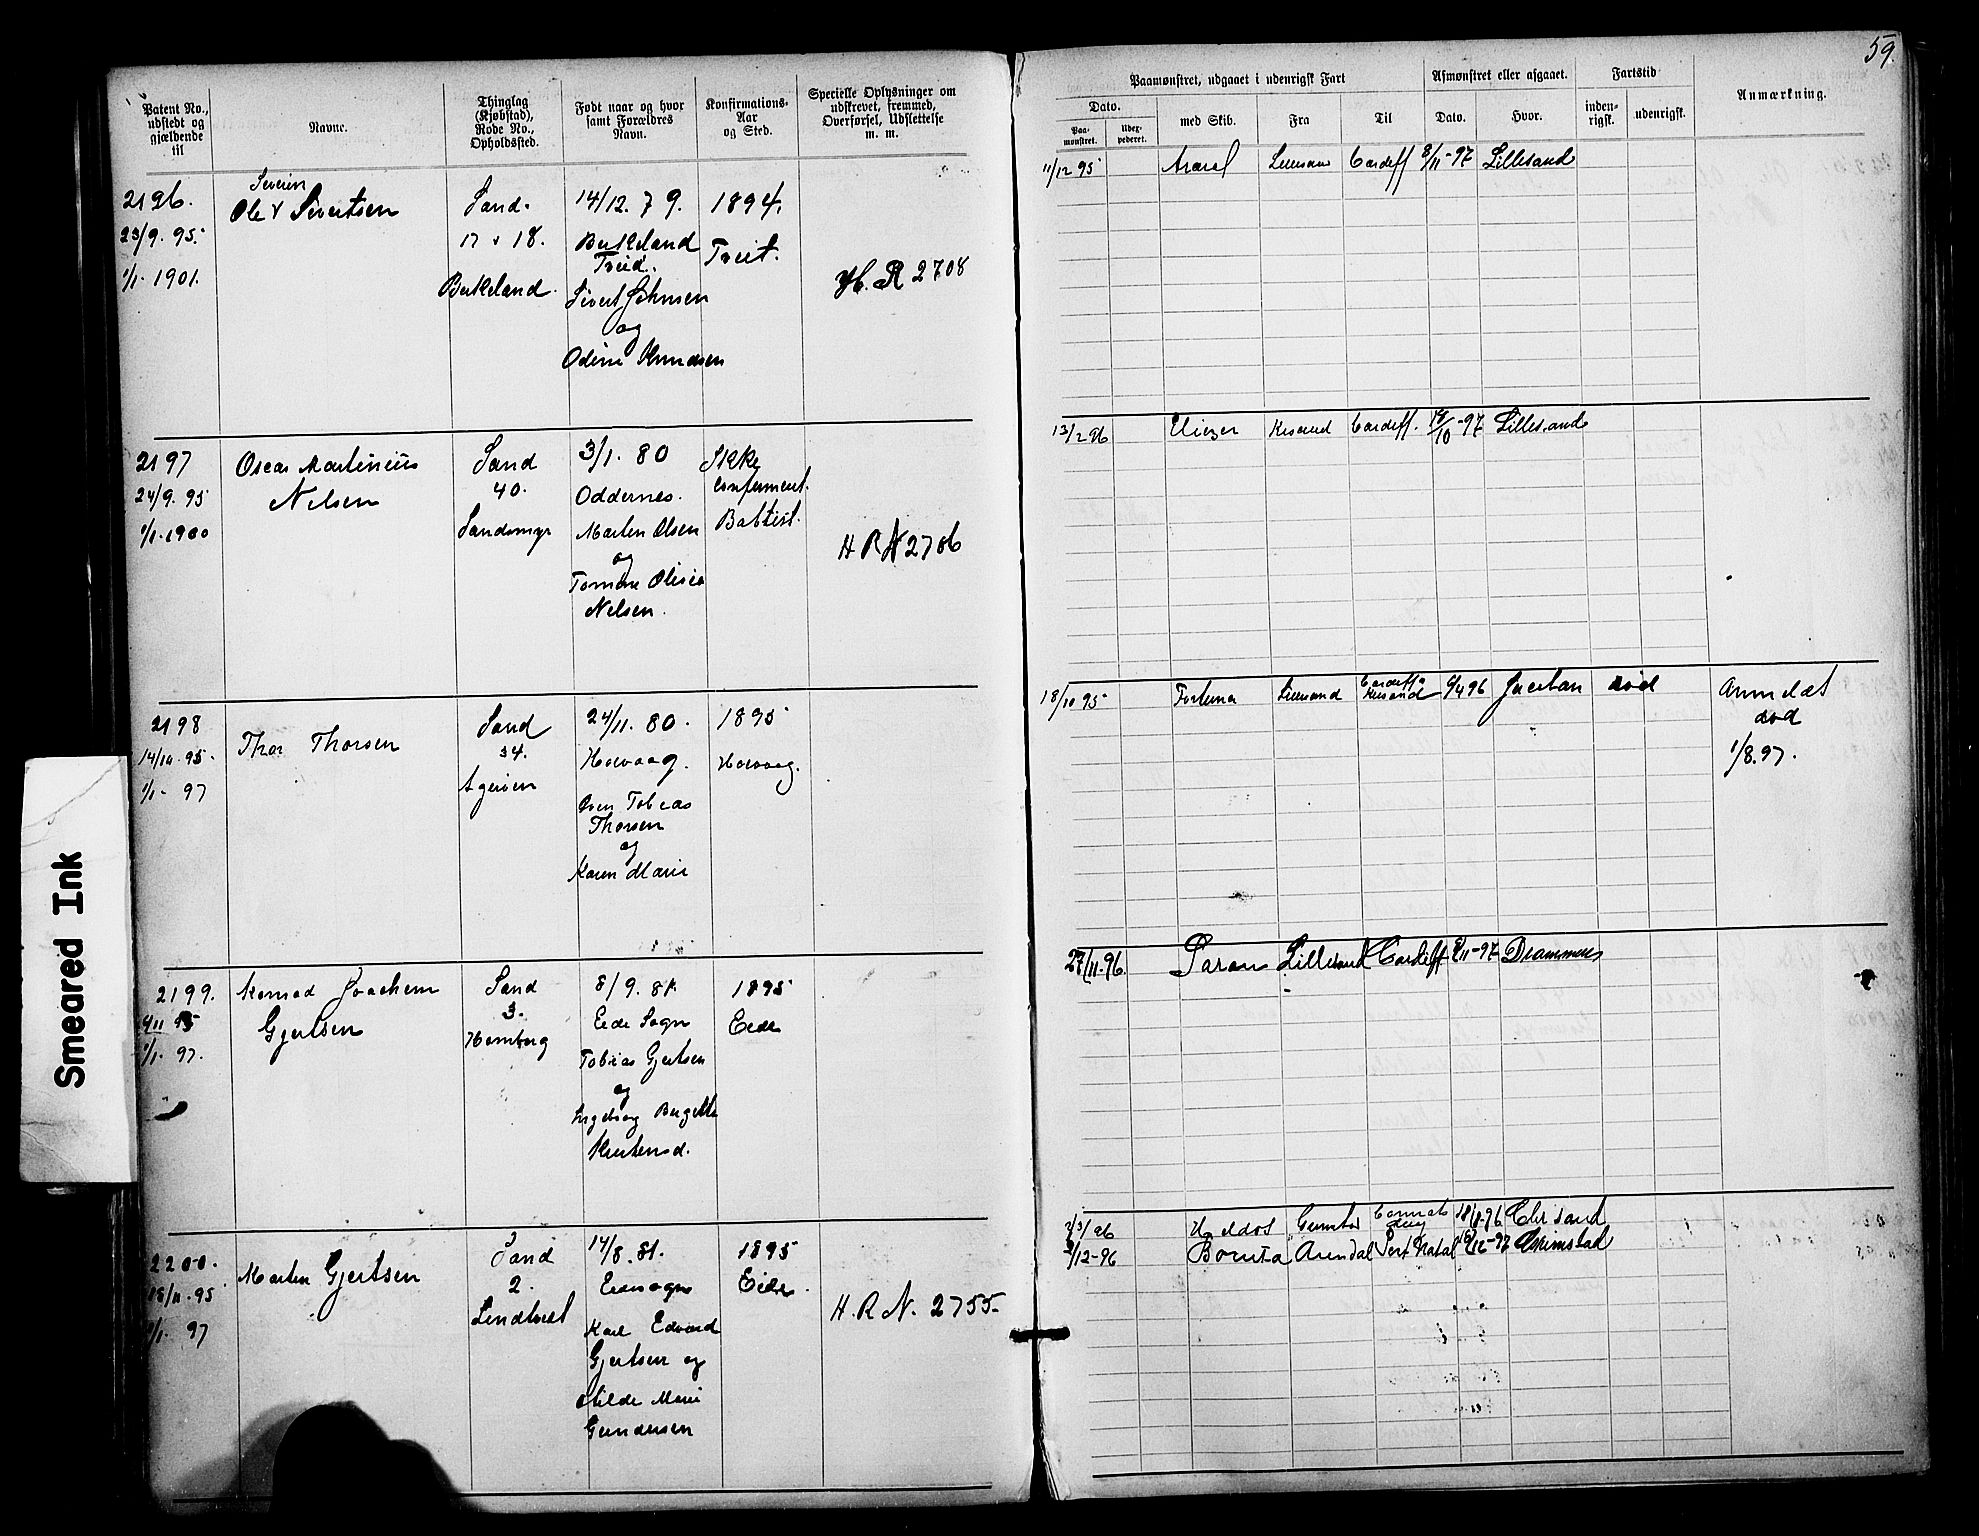 59.
Patent No., udstedt og gjældende til
Navne.
Thinglag (Kjøbstad), Rode No., Opholdssted.
Født naar og hvor samt Forældres Navn.
Konfirmations-Aar og Sted.
Specielle Oplysninger om udskrevet, fremmed, Overførsel, Udslettelse m. m.
Paamønstret, udgaaet i udenrigsk Fart
Afmønstret eller afgaaet.
Fartstid
Anmærkning.
Dato.
Paa-mønstret.
Udex-pederet.
med Skib.
Fra
Til
Dato.
Hvor.
inden-rigsk.
udenrigsk.
2196.
23/9. 95.
1/1. 1901.
Severin
Ole V Sivertsen
Sand.
17 & 18.
Berkeland.
14/12. 79.
Berkeland
Treid.
Sivert Johnsen
og
Odine Knudsen
1894.
Treit.
H. R 2708
11/12 95
Lillesand
Cardiff
8/11-97
Lillesand
2197
24/9. 95
1/1. 1900
Oscar Martinius
Nelsen
Sand
40.
Sandsmyr
3/1. 80
Oddernes.
Marten Olsen
og
Tomine Olisia
Nelsen.
Ikke
confirment.
Babtist.
H R N 2706
13/2 96
Eliezer
Cardiff.
-97
Lillesand
2198
14/10. 95.
1/1. 97
Thor Thorsen
Sand
34.
Agerøen
24/11. 80.
Høvaag.
Sven Tobias
Thorsen
og
Karen Marie
1895
Høvaag.
18/10 95
Fortuna
Lillesand
Cardiff
Krsand
6/4 96
død
Anmeldt
død
1/8. 97.
2199.
4/11 95
1/1. 97.
Konrad Joachem
Gjertsen
Sand
3.
Homborg
8/9. 81.
Eide Sogn
Tobias Gjertsen
og
Ingeborg Bergitte
1895
Eide
27/11. 96.
Lillesand
Cardiff
8/11-97
Drammen
2200.
18/11. 95
1/1. 97
Marten Gjertsen
Sand
2.
Lindtveit
14/8. 81.
Eidesogn
Karl Edvard
Gjertsen og
Otilde Marie
Gundersen
1895
Eide.
H. R N. 2755
2/3/96
Haldor
Grimstad
18/8-96
Chrsand
9/12-96
Bonita
Arendal
Port Natal
-97
Grimstad
Smeared Ink